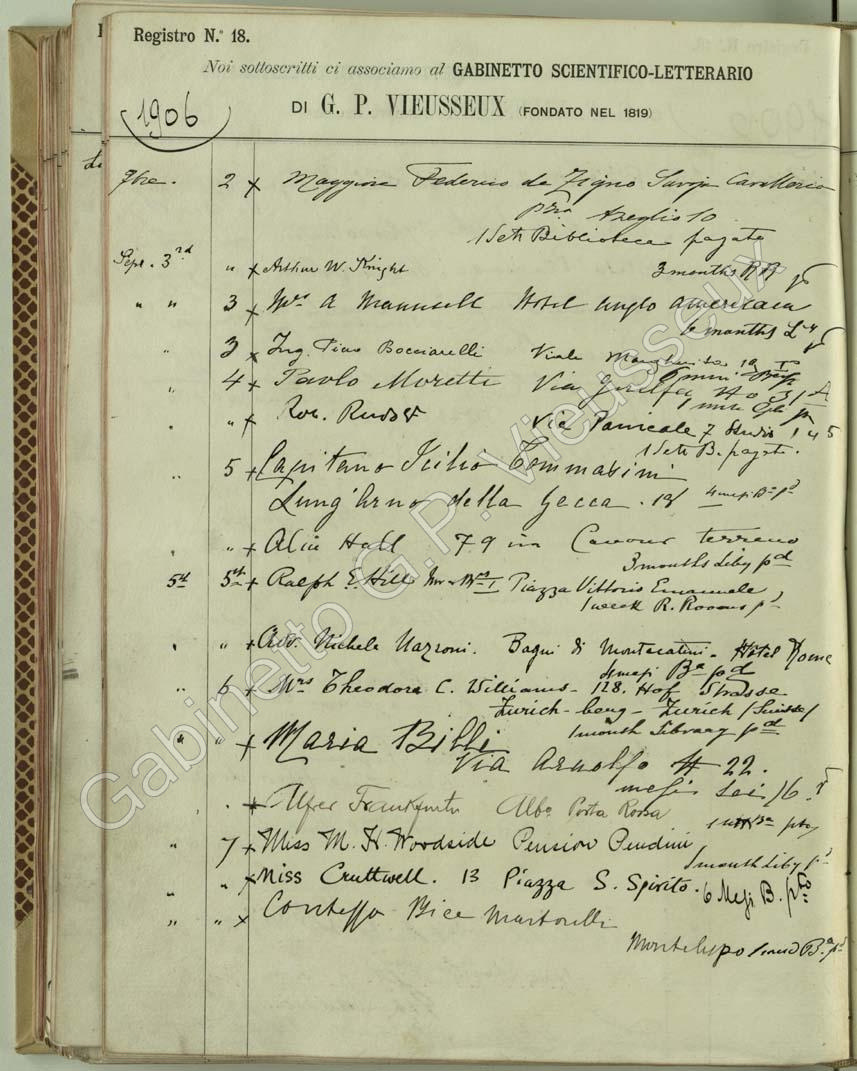 Registro N.° 18.
Noi sottoscritti ci associamo al GABINETTO SCIENTIFICO-LETTERARIO
DI G. P. VIEUSSEUX (FONDATO NEL 1819)
1906
7bre. 2 x Maggiore Federico de Zigno Savoja Cavalleria
Azeglio 10
1 Sett Biblioteca pagato
Sept. 3rd " x Arthur W. Knight
3 months RR
" " 3 x Mrs A Maunsell Hotel Anglo American
6 months
" 3 x Ing. Piero Bocciarelli Viale
" 4 x Paolo Moretti Via
" " x Rudolf Via Panicale 7 Studio
1 Sett B. pagato.
" 5 + Capitano Tommasini
Lung'Arno della Zecca. 18
" " + Hall 79 via Cavour terreno
3 months Liby pd
5th 5th + Ralph E. Hill Piazza Vittorio Emanuele,
1 week R. Rooms pd
" " + Avv. Michele Nazzoni. Bagni di Montecatini - Hôtel Rome
" 6 + Mrs Theodora C. Williams - 128. Hof Strasse
Zurich-berg - Zurich (Suisse)
1 month Library pd
" " + Maria Billi
Via Arnolfo # 22.
mesi Sei
. + Albo Porta Rossa
" 7 + Miss M. H. Woodside Pension Pendini
1 month Liby pd
" " x Miss Cruttwell. 13 Piazza S. Spirito. 6 Mesi B. pto
" " x Contessa Bice Martorelli
Gabinetto G.P. Vieusseux